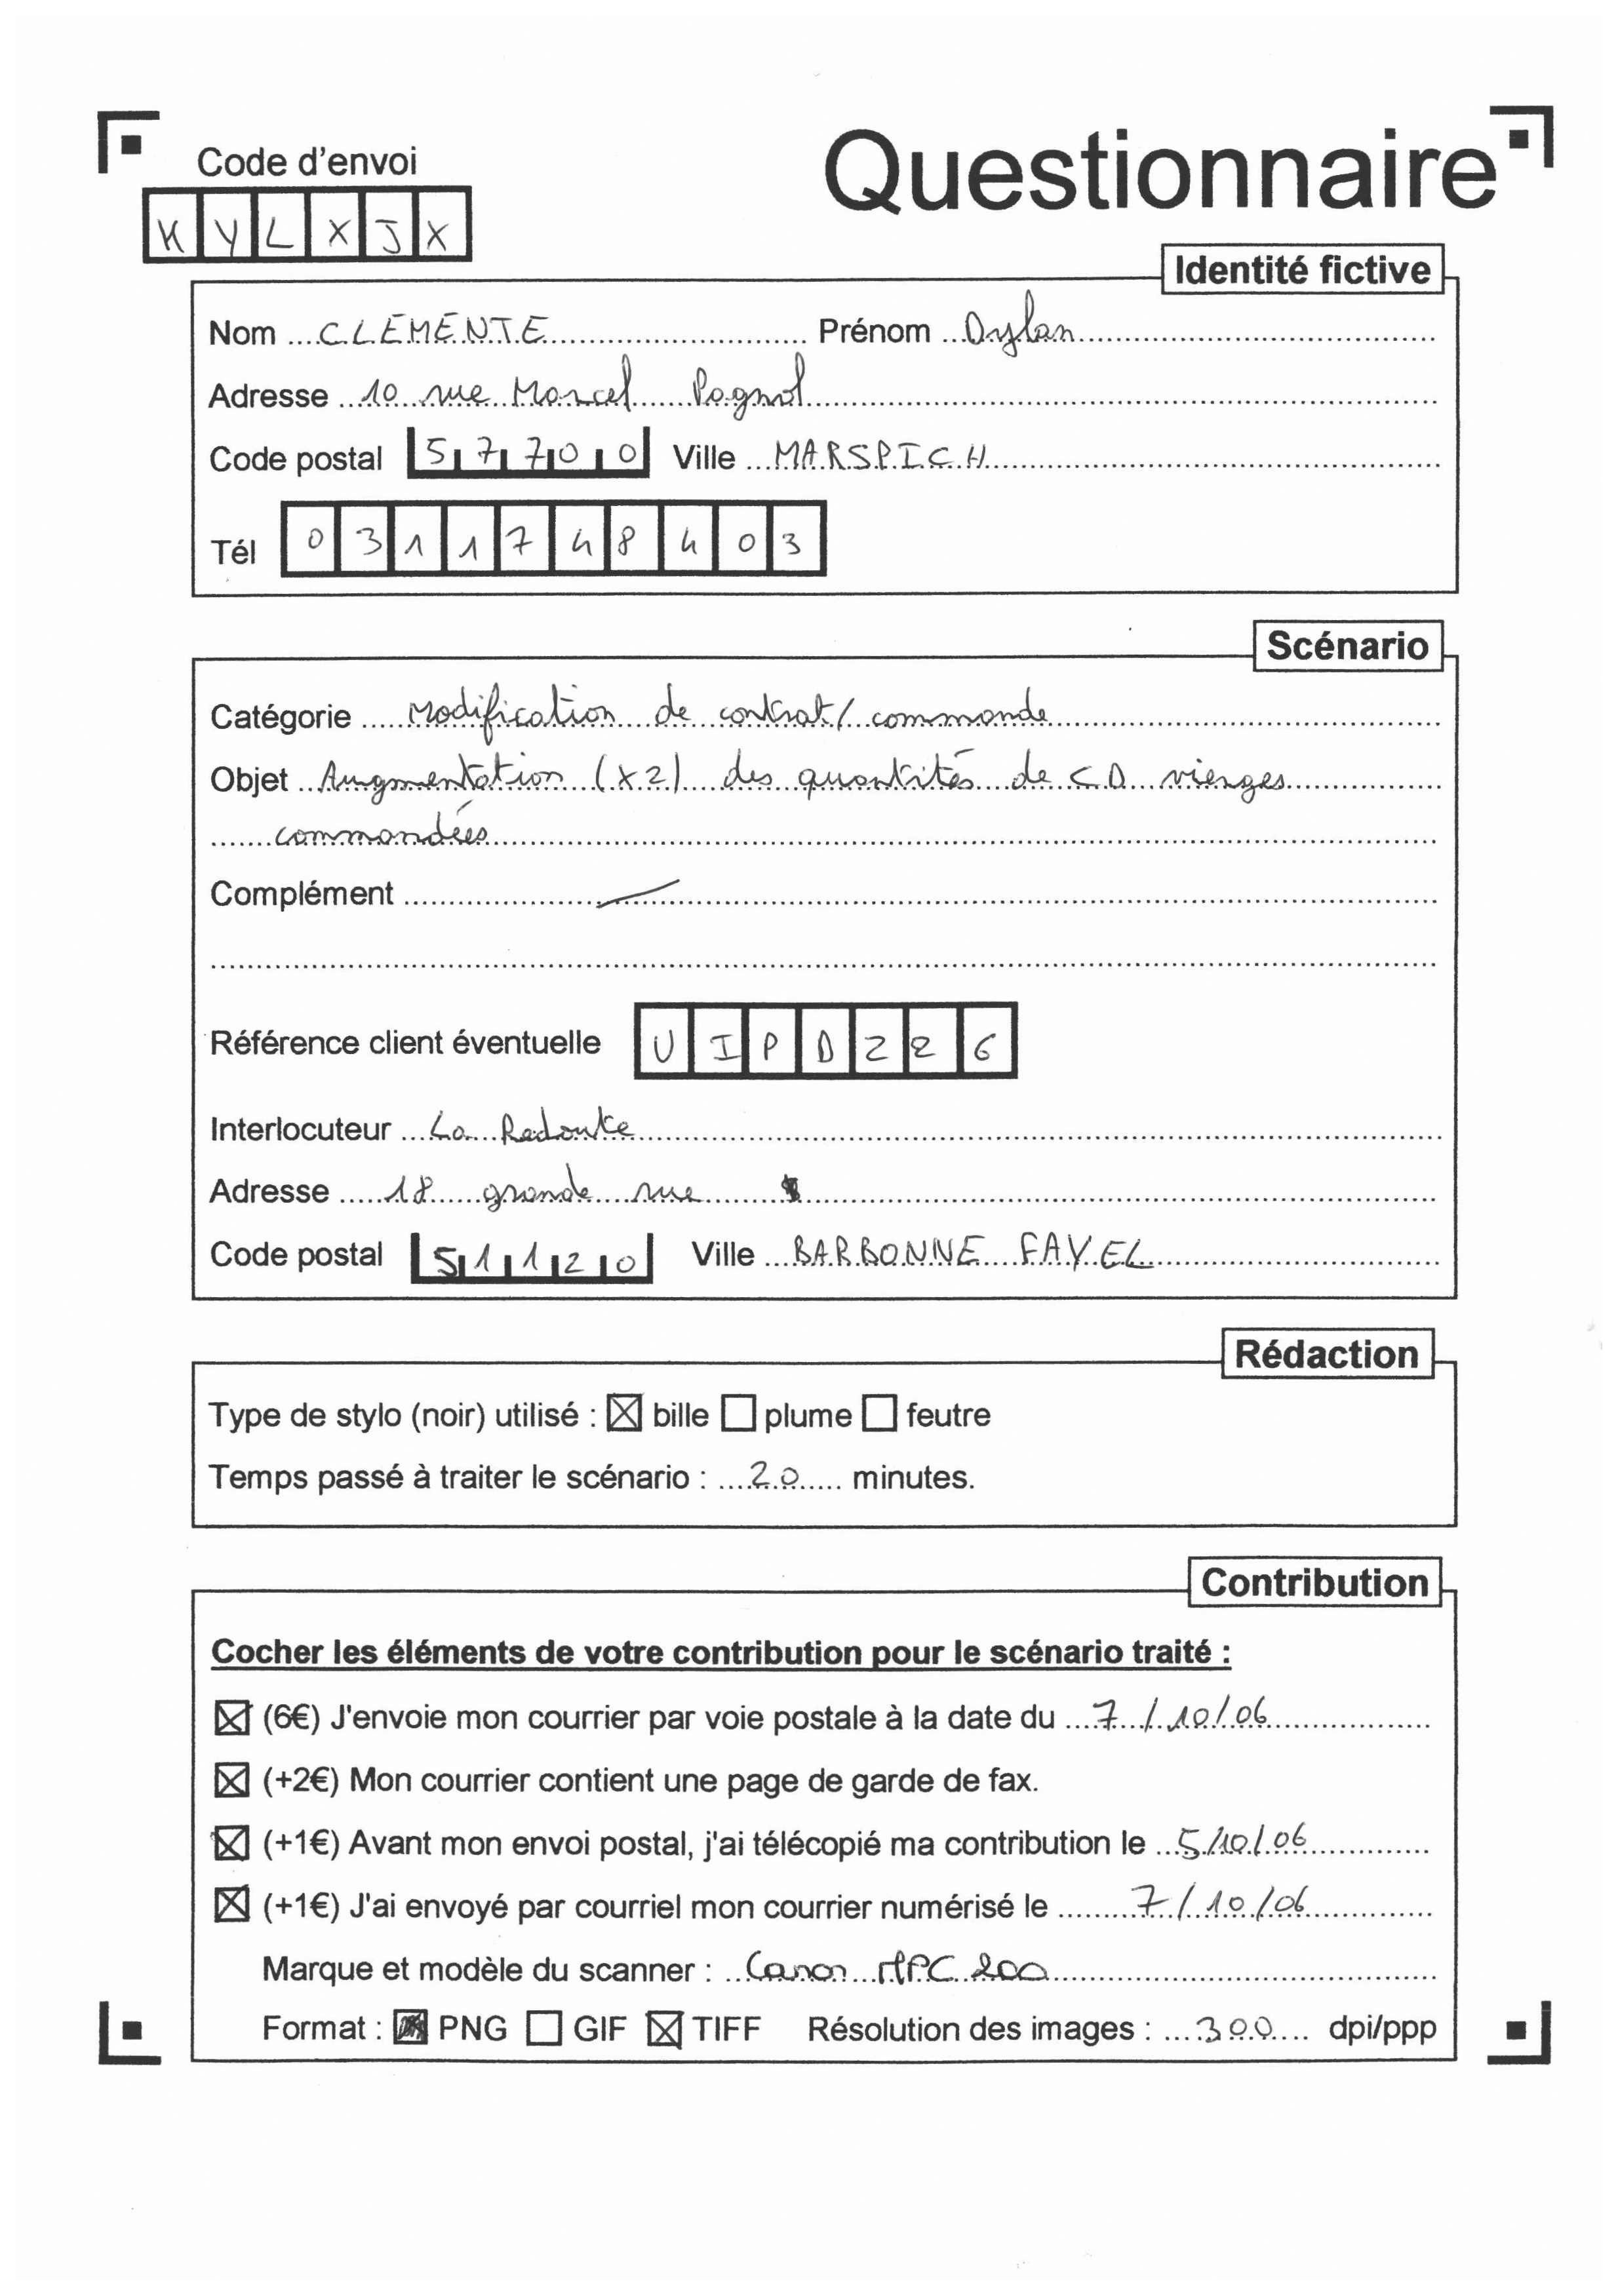 Code d'envoi
Questionnaire
K Y L X J X
Identité fictive
Nom CLEMENTE Prénom Dylan
Adresse 10 rue Marcel Pagnol
Code postal 57700 Ville MARSPICH
Tél 0311748403
Scénario
Catégorie Modification de contrat / commande
Objet Augmentation (x2) des quantités de CD vierges
commandées
Complément
Référence client éventuelle UIPD226
Interlocuteur La Redoute
Adresse 18 grande rue
Code postal 51120 Ville BARBONNE FAYEL
Rédaction
Type de stylo (noir) utilisé : bille plume feutre
Temps passé à traiter le scénario : 20 minutes.
Contribution
Cocher les éléments de votre contribution pour le scénario traité :
(6€) J'envoie mon courrier par voie postale à la date du 7/10/06
(+2€) Mon courrier contient une page de garde de fax.
(+1€) Avant mon envoi postal, j'ai télécopié ma contribution le 5/10/06
(+1€) J'ai envoyé par courriel mon courrier numérisé le 7/10/06
Marque et modèle du scanner : Canon MPC 200
Format : PNG GIF TIFF Résolution des images : 300 dpi/ppp